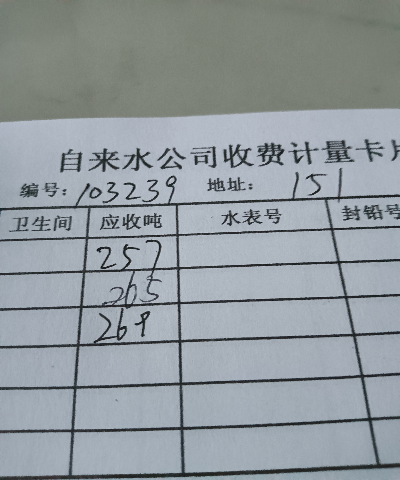 自来水公司收费计量卡片
编号：103239 地址：151
卫生间 应收吨 水表号 封铅号
257
265
269